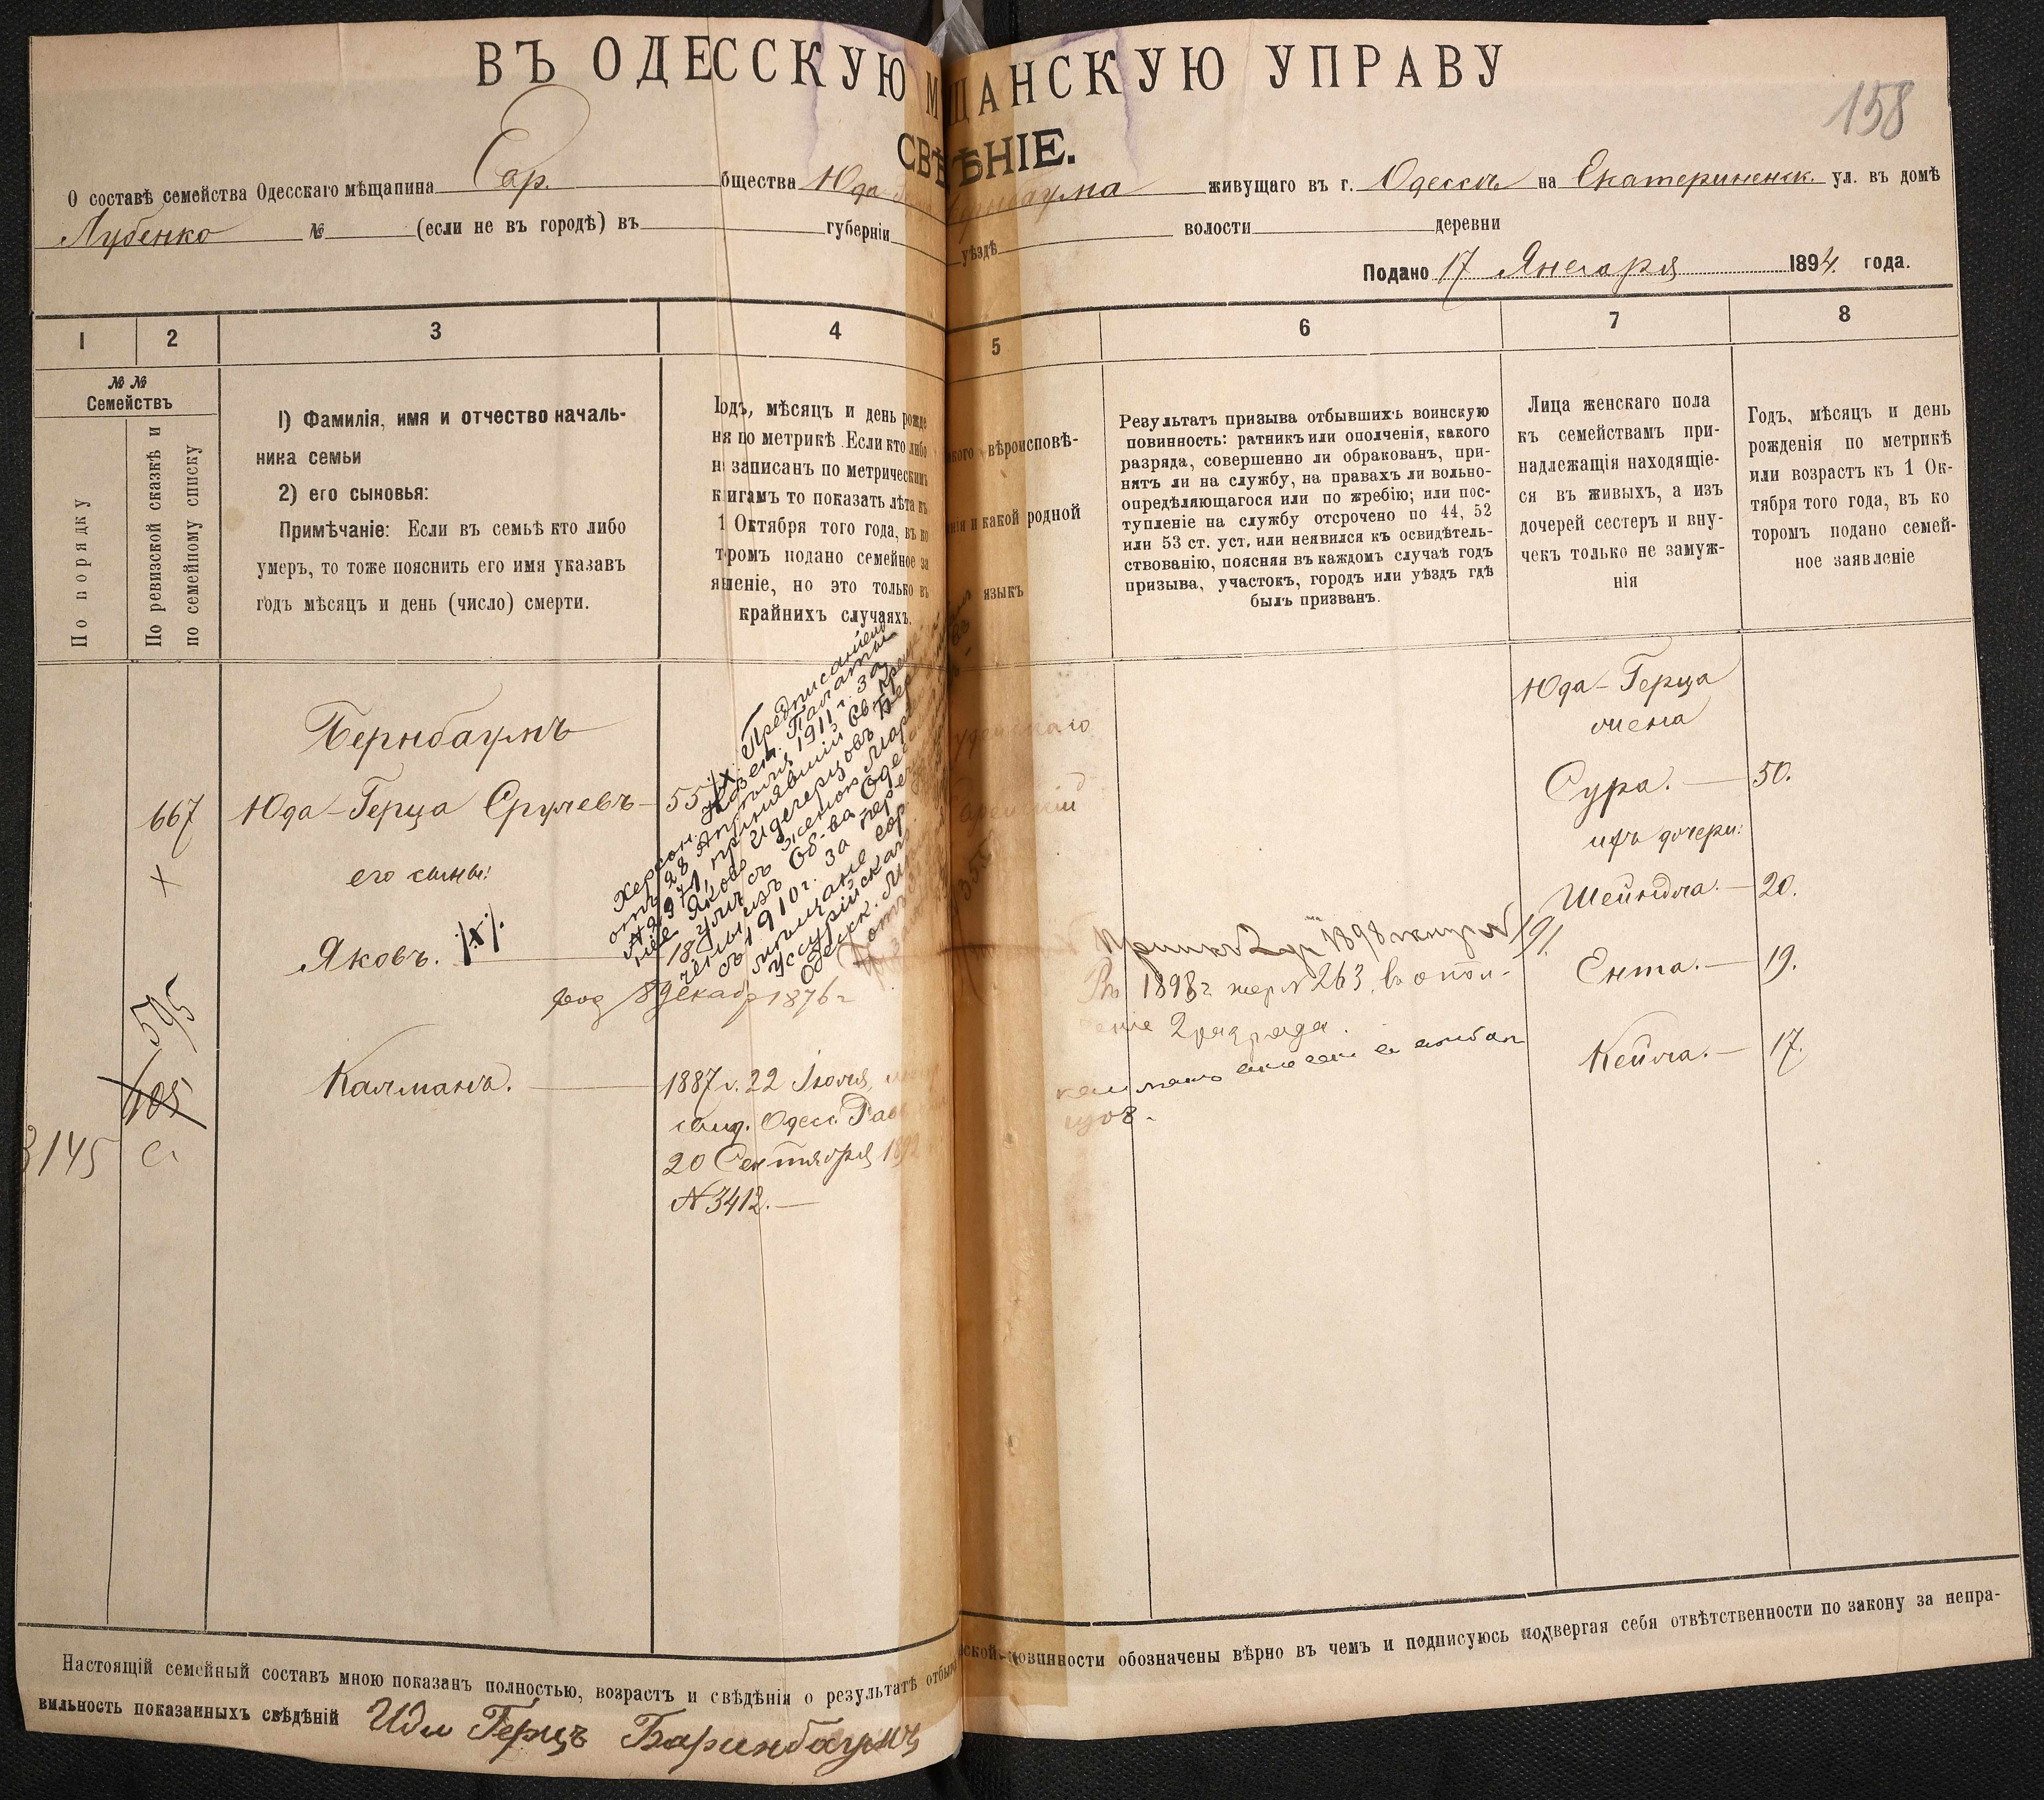 ВЪ ОДЕССКУЮ МЩАНСКУЮ УПРАВУ
158
СВѢѢНІЕ.
О составѣ семейства Одесскаго мѣщанина Евр. бщества Юда живущаго въ г. Одессѣ на Екатериненск. ул. въ домѣ
Лубенко № (если не въ городѣ) въ губерніи уѣздѣ волости деревни
Подано 17 Января 1894 года.
1 2 3 4 5 6 7 8
№ №
Семействъ
По порядку
По ревизской сказкѣ и
по семейному списку
1) Фамилія, имя и отчество началь-
ника семьи
2) его сыновья:
Примѣчаніе: Если въ семьѣ кто либо
умеръ, то тоже пояснить его имя указавъ
годъ мѣсяцъ и день (число) смерти.
Годъ, мѣсяцъ и день рожде
ня по метрикѣ. Если кто либо
н записанъ по метрическимъ
кигамъ то показать лѣта въ
1 Октября того года, въ ко
тромъ подано семейное за
явленіе, но это только въ
крайнихъ случаяхъ.
акого вѣроисповѣ-
нія и какой родной
языкъ
Результатъ призыва отбывшихъ воинскую
повинность: ратникъ или ополченія, какого
разряда, совершенно ли обракованъ, при-
нятъ ли на службу, на правахъ ли вольно-
опредѣляющагося или по жребію; или пос-
тупленіе на службу отсрочено по 44, 52
или 53 ст. уст. или неявился къ освидѣтель-
ствованію, поясняя въ каждомъ случаѣ годъ
призыва, участокъ, городъ или уѣздъ гдѣ
былъ призванъ.
Лица женскаго пола
къ семействамъ при-
надлежащія находящіе-
ся въ живыхъ, а изъ
дочерей сестеръ и вну-
чекъ только не замуж-
нія
Годъ, мѣсяцъ и день
рожденія по метрикѣ
или возрастъ къ 1 Ок-
тября того года, въ ко
торомъ подано семей-
ное заявленіе
Бернбаумъ
667 Юда-Герца Срулевъ 55
его сыны:
Яковъ. /х/
род 8 декабр 1876 г
/х. Предписаніемъ
Херсон. Казен. Палаты
отъ 28 Апрѣля 1911 г. за
№ 2971, принявшій Св. Креще
ніе Яковъ Идегерцовъ Бер
съ женою Мар
изъ Об-ва Одес
съ 1910 г. за пере
мѣщане гор
Уссурійска
Одесск.
595
105
3145
Калманъ. 1887 г. 22 Іюля,
свид. Одесс. Рав
20 Сентября 1892
№ 3412.
удейскаго
Еврейскій
1898 191.
Въ 1898 г жер № 263, в опол-
ченіе 2 разряда.
Юда-Герца
жена
Сура. 50.
ихъ дочери:
Шейндла. 20.
Ента. 19.
Кейла. 17.
Настоящій семейный составъ мною показанъ полностью, возрастъ и свѣдѣнія о результатѣ отбыв ской повинности обозначены вѣрно въ чемъ и подписуюсь подвергая себя отвѣтственности по закону за непра-
вильность показанныхъ свѣдѣній Идл Герцъ Баринбаумъ